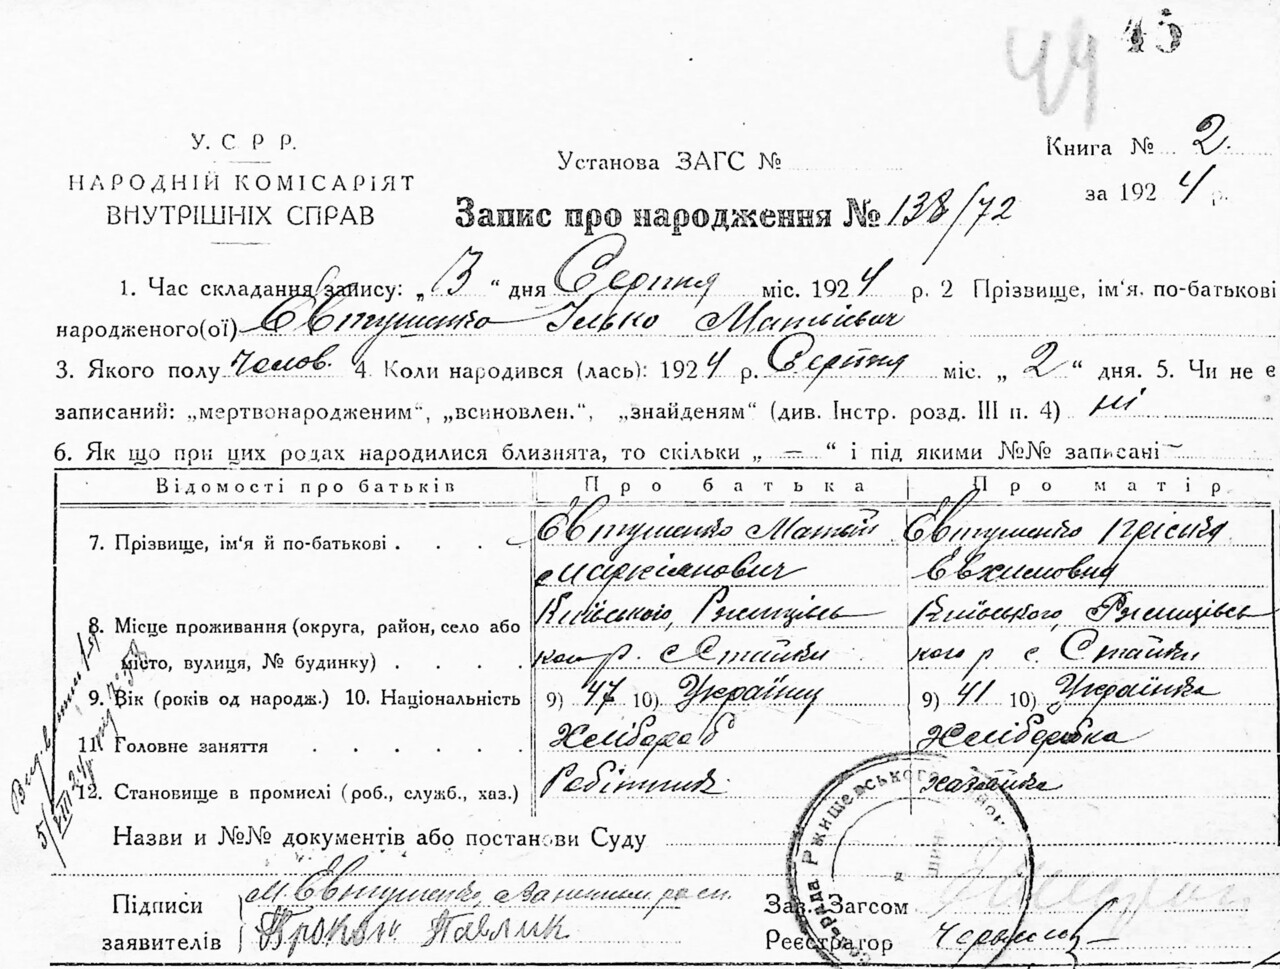 44 45
У. С Р Р.
НАРОДНІЙ КОМІСАРІЯТ
ВНУТРІШНІХ СПРАВ
Установа ЗАГС №
Книга № 2.
за 1924 р.
Запис про народження № 138/72
1. Час складання запису: „3“ дня Серпня міс. 1924 р. 2 Прізвище, ім'я, по-батькові
народженого(ої) Євтушенко Ілько Матвієвич
3. Якого полу чолов. 4 Коли народився (лась): 1924 р. Серпня міс. „2“ дня. 5. Чи не є
записаний: „мертвонародженим“, „всиновлен.“, „знайденям“ (див. Інстр. розд. III п. 4) ні
6. Як що при цих родах народилися близнята, то скільки „ — “ і під якими №№ записані —
Відомості про батьків Про батька Про матір
7. Прізвище, ім'я й по-батькові . . . . Євтушенко Матвій Євтушенко
Маркіянович Євхимовна
Київського, Ржищівсь Київського, Ржищівсь
8. Місце проживання (округа, район, село або
місто, вулиця, № будинку) . . . . кого р. Стайки кого р с. Стайки
9. Вік (років од народж.) 10. Національність 9) 47 10) Українц 9) 41 10) Українка
11. Головне заняття . . . . . . Хлібороб Хліборобка
12. Становище в промислі (роб., служб., хаз.) Робітник Хазяйка
Назви и №№ документів або постанови Суду
Підписи
заявителів
М. Євтушенко,
Прокоп Павлик
Зав. Загсом
Реєстратор
5/VIII 24
Ржищевського